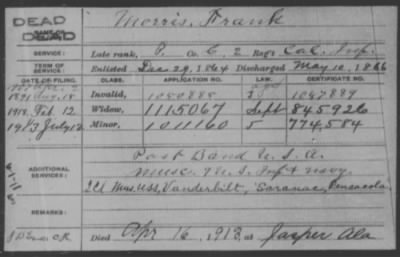 DEAD
DEAD
Morris, Frank
SERVICE: Late rank, P. Co. C, 2 Reg't Cal. Inf.
TERM OF SERVICE: Enlisted Dec 29, 1864 Discharged May 10, 1866
CLASS. APPLICATION NO. LAW. CERTIFICATE NO.
1891 Aug. 18 Invalid, 1050885 3 1047889
1918 Feb 12 Widow, 1115067 Sept 845926
1913 July 12 Minor, 1011160 5 774,584
Post Band U.S.A.
ADDITIONAL SERVICES: Musc. U.S. Inf & Navy
2 Cl Mus. USS, Vanderbilt, Saranac, Pensacola
REMARKS:
Died Apr 16, 1913, at Jasper Ala